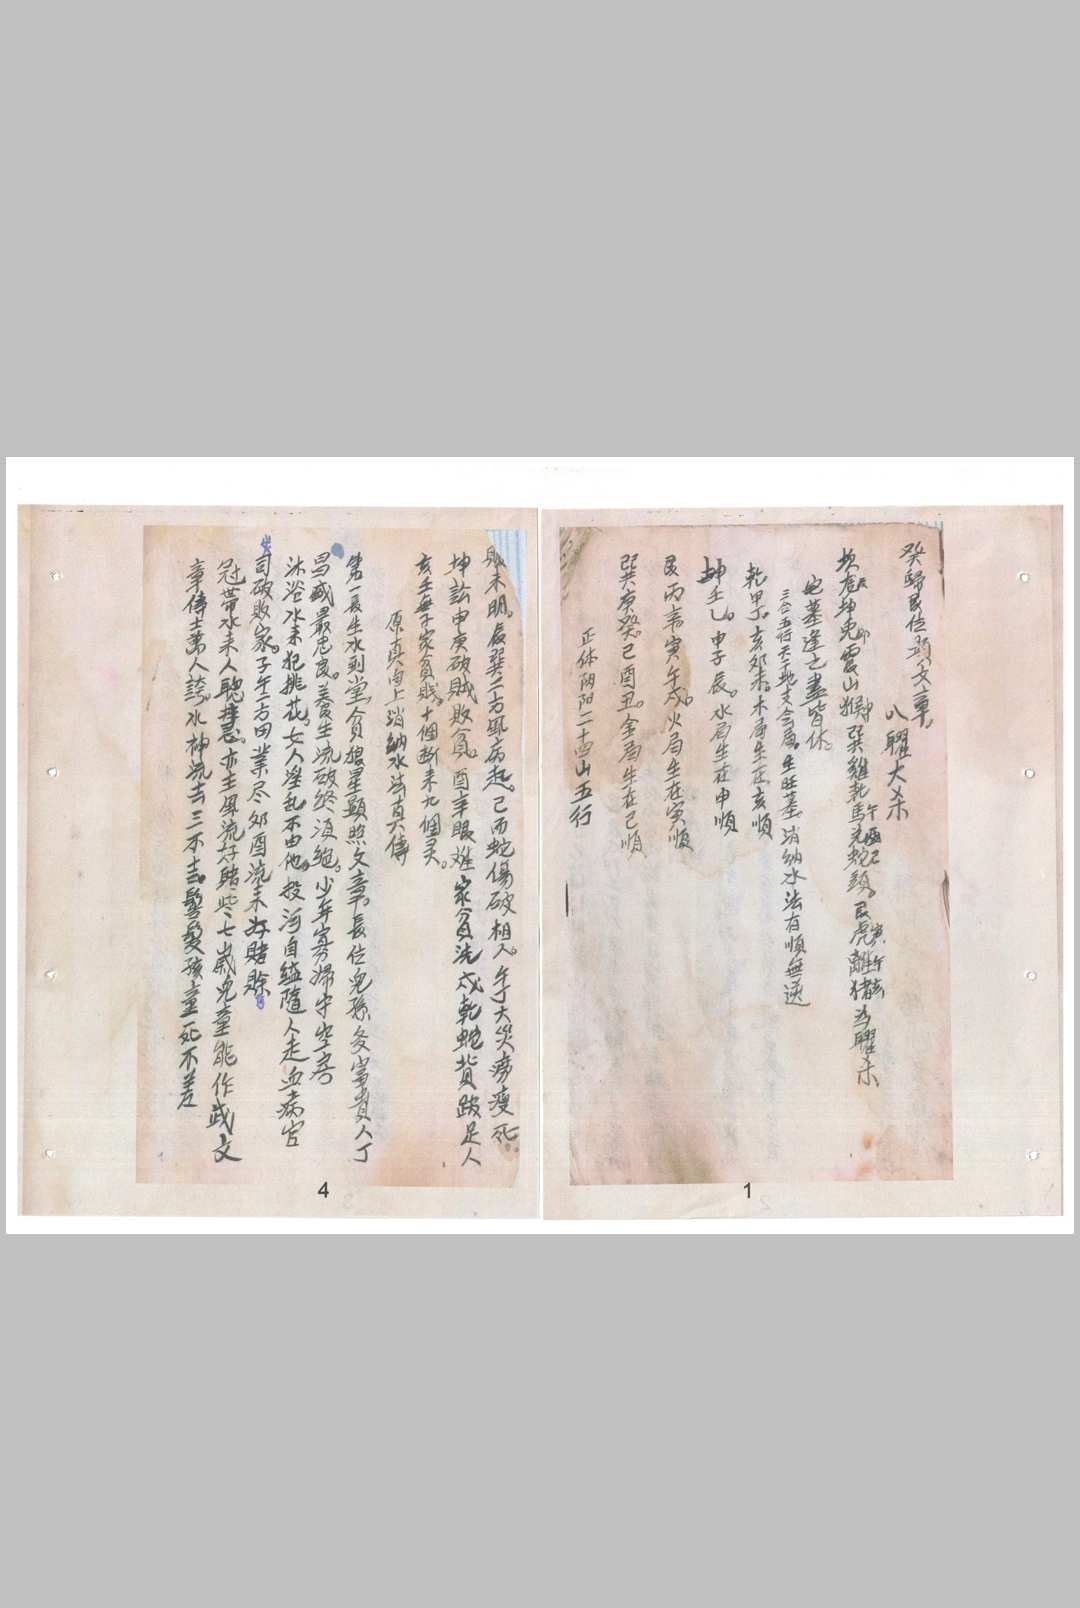 癸歸艮位顕文章。
八曜大杀
坎龙辰坤兔卯震山猴申巽雞酉乾馬午兑蛇巳頭。艮虎寅離猪亥为曜杀
宅墓逢之盡皆休。
三合五行天干地支会局。生旺墓。消纳水法有順無逆
乾甲丁。亥卯未。木局生在亥順
坤壬乙。申子辰。水局生在申順
艮丙辛寅午戍。火局生在寅順
巽庚癸。巳酉丑。金局生在巳順
正体阴阳二十四山五行
1
未明。辰巽二方瓜病起。巳丙蛇傷破相人。午丁大災痨瘦死
坤訟申庚破賊敗貧。酉辛眼难家貧洗戍乾蛇背跛足人
亥壬無子家貧贱。十個断来九個灵。
原真向上消納水法真傳
第一長生水到堂貪狼星顯照文章。長位兒孫多富貴人丁
昌盛最忠良。養生流破終須絕。少年寡婦守空房
沐浴水来犯桃花。女人淫乱不由他。投河自縊隨人走血病官
司破敗家。子午方田業尽卯酉流来好賭賒
冠帶水来人聰慧。亦主風流好賭些七歲兒童能作武文
章傳士萬人誇。水神流去三不吉。髫髮孩童死不差
4